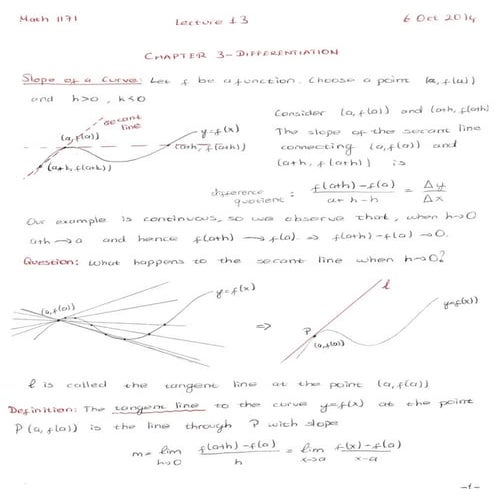 Math 1171 Lecture 13 6 Oct 2014
CHAPTER 3 - DIFFERENTIATION
Slope of a Curve: Let f be a function. Choose a point (a, f(a))
and h>0, h≤0
secant
line
(a, f(a))
y=f(x)
(a+h, f(a+h))
(a+h, f(a+h))
Consider (a, f(a)) and (a+h, f(a+h))
The slope of the secant line
connecting (a, f(a)) and
(a+h, f(a+h)) is
difference quotient : f(a+h)-f(a) / a+h-h = Δy / Δx
Our example is continuous, so we observe that, when h→0
a+h→a and hence f(a+h)→f(a) ⇒ f(a+h)-f(a)→0.
Question: What happens to the secant line when h→0?
(a, f(a))
y=f(x)
⇒
l
P
(a, f(a))
y=f(x)
l is called the tangent line at the point (a, f(a))
Definition: The tangent line to the curve y=f(x) at the point
P(a, f(a)) is the line through P with slope
m = lim h→0 f(a+h)-f(a) / h = lim x→a f(x)-f(a) / x-a
-1-